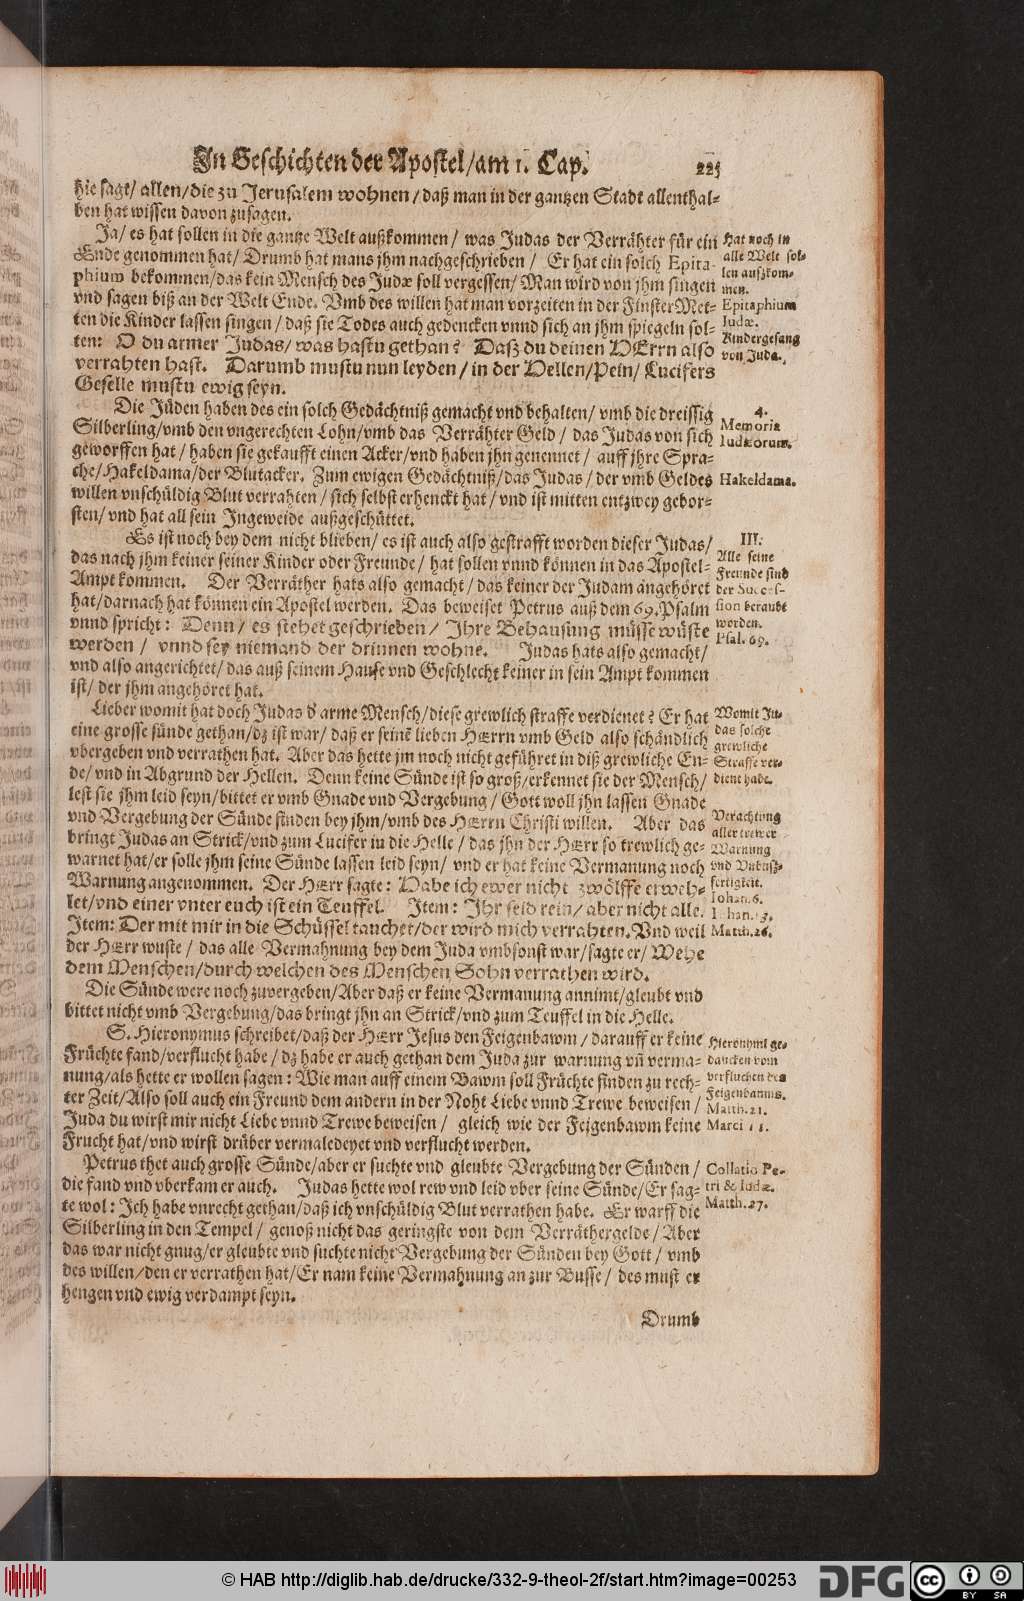 In Geschichten der Apostel/am 1. Cap. 225
hie sagt/ allen/die zu Jerusalem wohnen/daß man in der gantzen Stadt allenthal-
ben hat wissen davon zusagen.
Ja/ es hat sollen in die gantze Welt außkommen/ was Judas der Verrähter für ein
Ende genommen hat/ Drumb hat mans jhm nachgeschrieben/ Er hat ein solch Epita-
phium bekommen/das kein Mensch des Judæ soll vergessen/ Man wird von jhm singen
vnd sagen biß an der Welt Ende. Vmb des willen hat man vorzeiten in der Finster Met-
ten die Kinder lassen singen/ daß sie Todes auch gedencken vnnd sich an jhm spiegeln sol-
ten: O du armer Judas/ was hastu gethan? Daß du deinen HErrn also
verrahten hast. Darumb mustu nun leyden/ in der Hellen/Pein/ Lucifers
Geselle mustu ewig seyn.
Hat noch in
alle Welt sol-
len außkom-
men.
Epitaphium
Iudæ.
Kindergesang
von Juda.
Die Jüden haben des ein solch Gedächtniß gemacht vnd behalten/ vmb die dreissig
Silberling/vmb den vngerechten Lohn/vmb das Verrähter Geld/ das Judas von sich
geworffen hat/ haben sie gekaufft einen Acker/vnd haben jhn genennet/ auff jhre Spra-
che/Hakeldama/der Blutacker. Zum ewigen Gedächtniß/das Judas/ der vmb Geldes
willen vnschüldig Blut verrahten/ sich selbst erhenckt hat/ vnd ist mitten entzwey gebor-
sten/ vnd hat all sein Ingeweide außgeschüttet.
4.
Memoria
Iudæorum.
Hakeldama.
Es ist noch bey dem nicht blieben/ es ist auch also gestrafft worden dieser Judas/
das nach jhm keiner seiner Kinder oder Freunde/ hat sollen vnnd können in das Apostel-
Ampt kommen. Der Verräther hats also gemacht/ das keiner der Judam angehöret
hat/darnach hat können ein Apostel werden. Das beweiset Petrus auß dem 69. Psalm
vnnd spricht: Denn/ es stehet geschrieben/ Ihre Behausung müsse wüste
werden/ vnnd sey niemand der drinnen wohne. Judas hats also gemacht/
vnd also angerichtet/ das auß seinem Hause vnd Geschlecht keiner in sein Ampt kommen
ist/ der jhm angehöret hat.
III.
Alle seine
Freunde sind
der Succes-
sion beraubt
worden.
Psal. 69.
Lieber womit hat doch Judas d' arme Mensch/diese grewlich straffe verdienet? Er hat
eine grosse sünde gethan/dz ist war/ daß er seinē lieben HErrn vmb Geld also schändlich
vbergeben vnd verrathen hat. Aber das hette jm noch nicht geführet in diß grewliche En-
de/ vnd in Abgrund der Hellen. Denn keine Sünde ist so groß/erkennet sie der Mensch/
lest sie jhm leid seyn/bittet er vmb Gnade vnd Vergebung/ Gott woll jhn lassen Gnade
vnd Vergebung der Sünde finden bey jhm/vmb des HErrn Christi willen. Aber das
bringt Judas an Strick/vnd zum Lucifer in die Helle/ das jhn der HErr so trewlich ge-
warnet hat/er solle jhm seine Sünde lassen leid seyn/ vnd er hat keine Vermanung noch
Warnung angenommen. Der HErr sagte: Habe ich ewer nicht zwölffe erweh-
let/vnd einer vnter euch ist ein Teuffel. Item: Ihr seid rein/ aber nicht alle.
Item: Der mit mir in die Schüssel tauchet/der wird mich verrahten. Vnd weil
der HErr wuste/ das alle Vermahnung bey dem Juda vmbsonst war/sagte er/ Wehe
dem Menschen/durch welchen des Menschen Sohn verrathen wird.
Womit Ju-
das solche
grewliche
Straffe ver-
dient habe.
Verachtung
aller trewer
Warnung
vnd Vnbuß-
fertigkeit.
Iohan. 6.
Iohan. 13.
Matth. 26.
Die Sünde were noch zuvergeben/Aber daß er keine Vermanung annimt/gleubt vnd
bittet nicht vmb Vergebung/das bringt jhn an Strick/vnd zum Teuffel in die Helle.
S. Hieronymus schreibet/daß der HErr Jesus den Feigenbawm/ darauff er keine
Früchte fand/verflucht habe/ dz habe er auch gethan dem Juda zur warnung vñ verma-
nung/als hette er wollen sagen: Wie man auff einem Bawm soll Früchte finden zu rech-
ter Zeit/Also soll auch ein Freund dem andern in der Noht Liebe vnnd Trewe beweisen/
Juda du wirst mir nicht Liebe vnnd Trewe beweisen/ gleich wie der Feigenbawm keine
Frucht hat/vnd wirst drüber vermaledeyet vnd verflucht werden.
Hieronymi ge-
dancken vom
verfluchen des
Feigenbaums.
Matth. 21.
Marci 11.
Petrus thet auch grosse Sünde/aber er suchte vnd gleubte Vergebung der Sünden/
die fand vnd vberkam er auch. Judas hette wol rew vnd leid vber seine Sünde/Er sag-
te wol: Ich habe vnrecht gethan/daß ich vnschüldig Blut verrathen habe. Er warff die
Silberling in den Tempel/ genoß nicht das geringste von dem Verräthergelde/ Aber
das war nicht gnug/er gleubte vnd suchte nicht Vergebung der Sünden bey Gott/ vmb
des willen/den er verrathen hat/Er nam keine Vermahnung an zur Busse/ des must er
hengen vnd ewig verdampt seyn.
Collatio Pe-
tri & Iudæ.
Matth. 27.
Drumb
© HAB http://diglib.hab.de/drucke/332-9-theol-2f/start.htm?image=00253
DFG
cc
BY SA